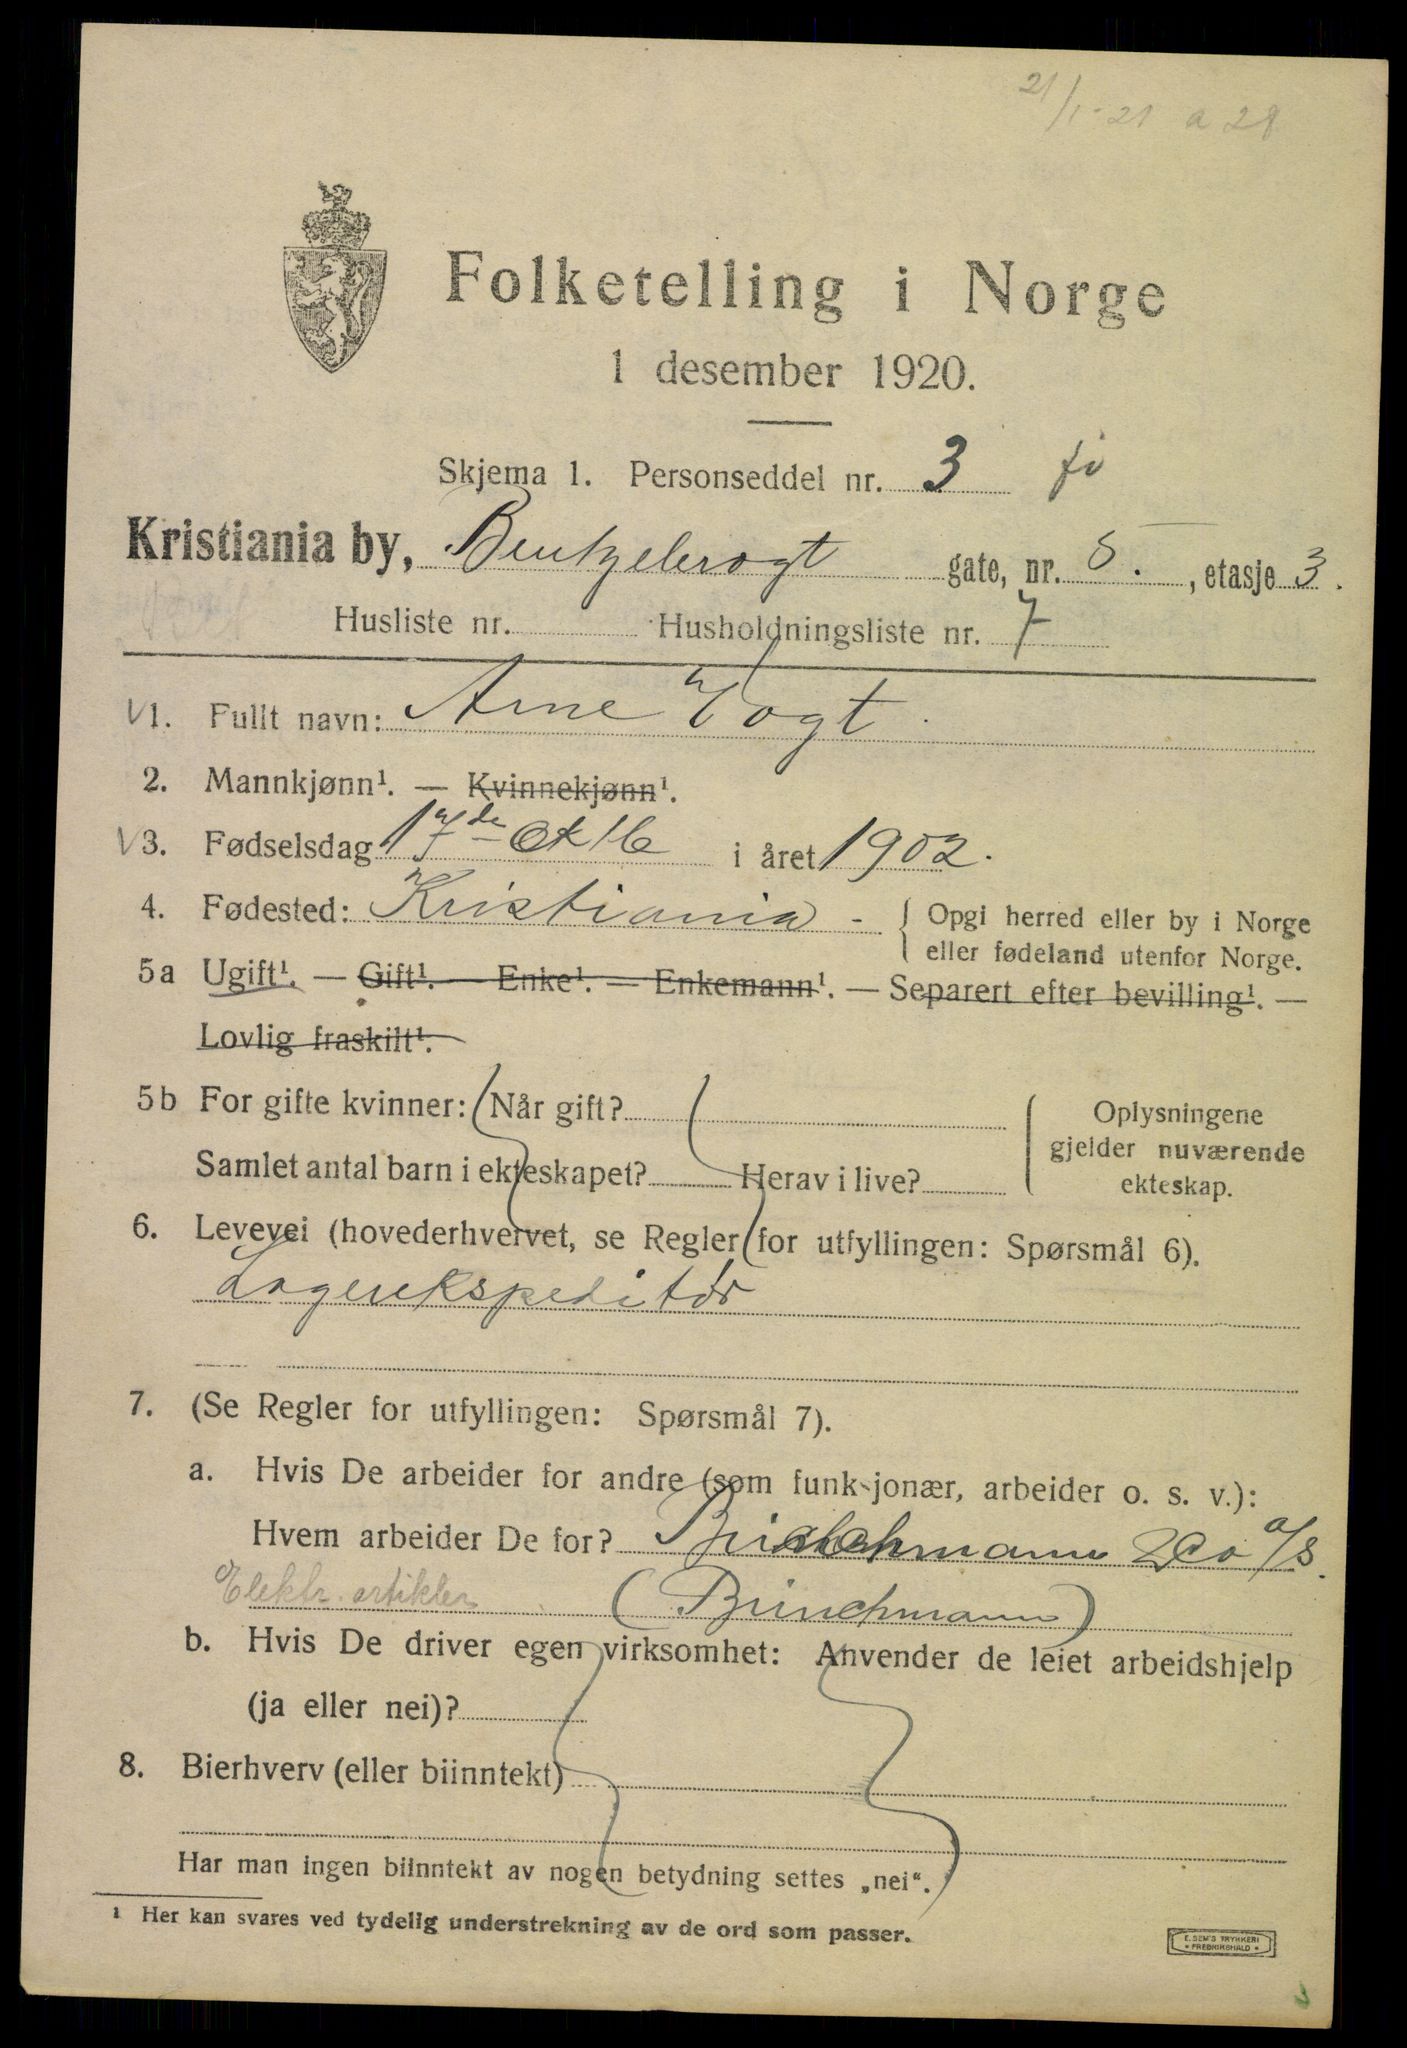 21/1-21 a 28
Folketelling i Norge
1 desember 1920.
Skjema 1. Personseddel nr. 3
Kristiania by, Bentzelerogt gate, nr. 5. , etasje 3.
Husliste nr. Husholdningsliste nr. 7
V1. Fullt navn: Arne Vogt.
2. Mannkjønn¹. — Kvinnekjønn¹.
V3. Fødselsdag 17de Oktb i året 1902.
4. Fødested: Kristiania - { Opgi herred eller by i Norge
eller fødeland utenfor Norge.
5a Ugift¹. — Gift¹. — Enke¹. — Enkemann¹. — Separert efter bevilling¹. —
Lovlig fraskilt¹.
5b For gifte kvinner: Når gift? Oplysningene
gjelder nuværende
Samlet antal barn i ekteskapet? Herav i live? ekteskap.
6. Levevei (hovederhvervet, se Regler for utfyllingen: Spørsmål 6).
Lagerekspeditör
7. (Se Regler for utfyllingen: Spørsmål 7).
a. Hvis De arbeider for andre (som funksjonær, arbeider o. s. v.):
Hvem arbeider De for? & Co a/s.
Elektr. artikler (Brinchmann)
b. Hvis De driver egen virksomhet: Anvender de leiet arbeidshjelp
(ja eller nei)?
8. Bierhverv (eller biinntekt)
Har man ingen biinntekt av nogen betydning settes „nei“.
¹ Her kan svares ved tydelig understrekning av de ord som passer.
E. SEM'S TRYKKERI
• FREDRIKSHALD •